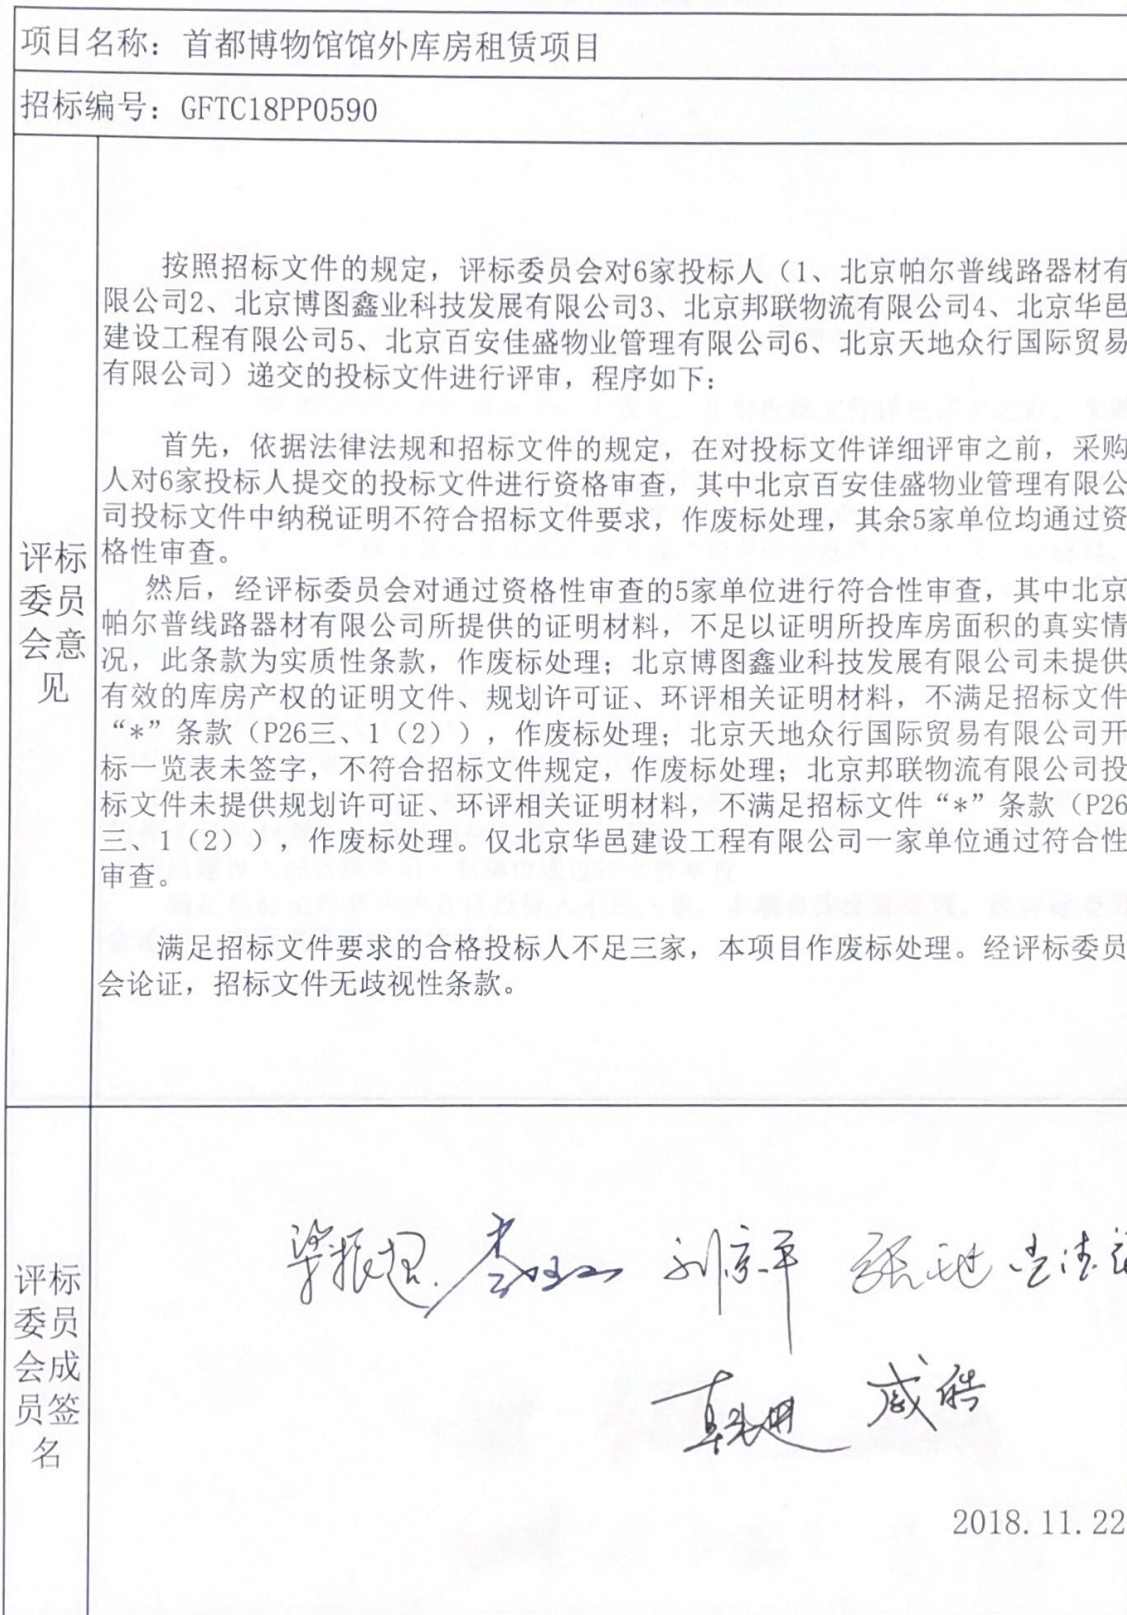 项目名称：首都博物馆馆外库房租赁项目
招标编号：GFTC18PP0590
按照招标文件的规定，评标委员会对6家投标人（1、北京帕尔普线路器材有
限公司2、北京博图鑫业科技发展有限公司3、北京邦联物流有限公司4、北京华邑
建设工程有限公司5、北京百安佳盛物业管理有限公司6、北京天地众行国际贸易
有限公司）递交的投标文件进行评审，程序如下：
首先，依据法律法规和招标文件的规定，在对投标文件详细评审之前，采购
人对6家投标人提交的投标文件进行资格审查，其中北京百安佳盛物业管理有限公
司投标文件中纳税证明不符合招标文件要求，作废标处理，其余5家单位均通过资
格性审查。
然后，经评标委员会对通过资格性审查的5家单位进行符合性审查，其中北京
帕尔普线路器材有限公司所提供的证明材料，不足以证明所投库房面积的真实情
况，此条款为实质性条款，作废标处理；北京博图鑫业科技发展有限公司未提供
有效的库房产权的证明文件、规划许可证、环评相关证明材料，不满足招标文件
“*”条款（P26三、1（2）），作废标处理；北京天地众行国际贸易有限公司开
标一览表未签字，不符合招标文件规定，作废标处理；北京邦联物流有限公司投
标文件未提供规划许可证、环评相关证明材料，不满足招标文件“*”条款（P26
三、1（2）），作废标处理。仅北京华邑建设工程有限公司一家单位通过符合性
审查。
满足招标文件要求的合格投标人不足三家，本项目作废标处理。经评标委员
会论证，招标文件无歧视性条款。
评标
委员
会意
见
评标
委员
会成
员签
名
梁振超 刘京平
戚皓
2018.11.22